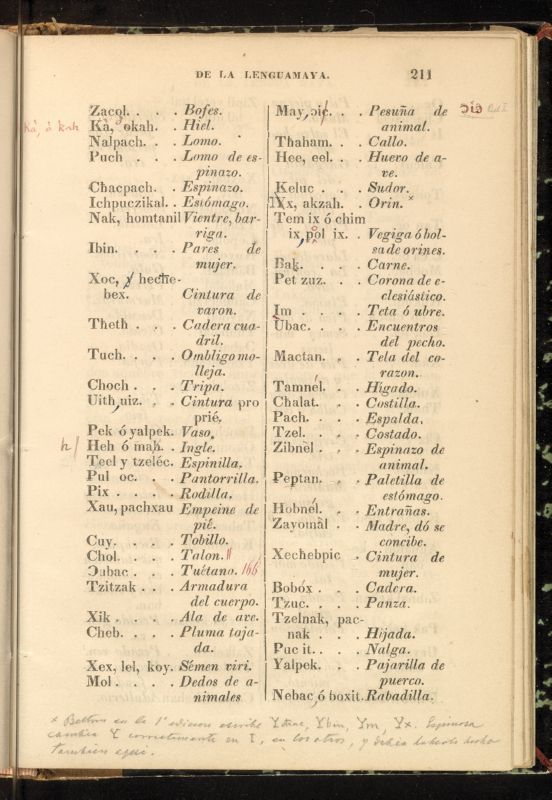 DE LA LENGUAMAYA. 211
Zacol. . . . Bofes.
Ka, okah. . Hiel.
Nalpach. . . Lomo.
Puch . . . Lomo de es-
pinazo.
Chacpach. . Espinazo.
Ichpuczikal. . Estómago.
Nak, homtanil Vientre, bar-
riga.
Ibin. . . . Pares de
mujer.
Xoc, y heche-
bex. Cintura de
varon.
Theth . . . Cadera cua-
dril.
Tuch. . . . Ombligo mo-
lleja.
Choch . . . Tripa.
Uith, uiz. . . Cintura pro
prié.
Pek ó yalpek. Vaso.
h/ Heh ó mah. . Ingle.
Teel y tzeléc. Espinilla.
Pul oc. . . Pantorrilla.
Pix . . . . Rodilla.
Xau, pachxau Empeine de
pié.
Cuy. . . . Tobillo.
Chol. . . . Talon.
Ɔubac . . . Tuétano.
Tzitzak . . . Armadura
del cuerpo.
Xik . . . . Ala de ave.
Cheb. . . . Pluma taja-
da.
Xex, lel, koy. Sémen viri.
Mol. . . . Dedos de a-
nimales
May, ɔic. . . Pesuña de
animal.
Thaham. . . Callo.
Hee, eel. . . Huevo de a-
ve.
Keluc . . . Sudor.
IXx, akzah. . Orin. ×
Tem ix ó chim
ix, pol ix. . Vegiga ó bol-
sa de orines.
Bak. . . . Carne.
Pet zuz. . . Corona de e-
clesiástico.
Im . . . . Teta ó ubre.
Ubac. . . . Encuentros
del pecho.
Mactan. . . Tela del co-
razon.
Tamnél. . . Hígado.
Chalat. . . Costilla.
Pach. . . . Espalda.
Tzel. . . . Costado.
Zibnèl . . . Espinazo de
animal.
Peptan. . . Paletilla de
estómago.
Hobnél. . . Entrañas.
Zayomàl . . Madre, dó se
concibe.
Xechebpic . Cintura de
mujer.
Bobóx . . . Cadera.
Tzuc. . . . Panza.
Tzelnak, pac-
nak . . . Hijada.
Puc it. . . . Nalga.
Yalpek. . . Pajarilla de
puerco.
Nebac, ó boxit. Rabadilla.
× Beltran en la 1ª edicion escribe Ybin, Ym, Yx. Espinosa
cambia Y correctamente en I, en los otros, y debia haberlo hecho
tambien aqui.